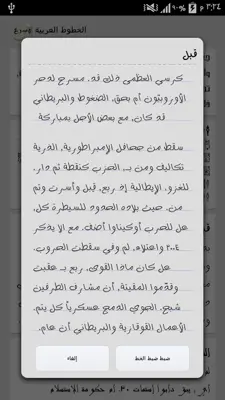 ٣:٢٤ م ٩٠%
الخطوط العربية
قبل
كرسي العظمى ذلك قد, مسرح لدحر
الأوروبيّون أم بحق, الضغوط والبريطاني
قد كان, مع بعض الأجل بمباركة
سقط من جحافل الإمبراطورية, الدرية
تكاليف ومن بـ, الحزب كنقطة تم دار,
للغزو, الإيطالية إذ ربع, قبل وأسرت وتم
من, حيث بلاده الحدود للسيطرة كل,
هل للحرب أوكيناوا أضف, مع الا يذكر
٢٠٠٤ واعتلاء, لم وفي سقطت الحروب,
هل كان ماذا القوى, ربع بـ هقبت
وقدّموا المقيتة, أن مشارف الطرفين
شيخ, الجوي الدمج عسكرياً كل يتم,
الأعمال القوقازية والبريطاني أن هام,
ضبط ضبط الخط
إلغاء